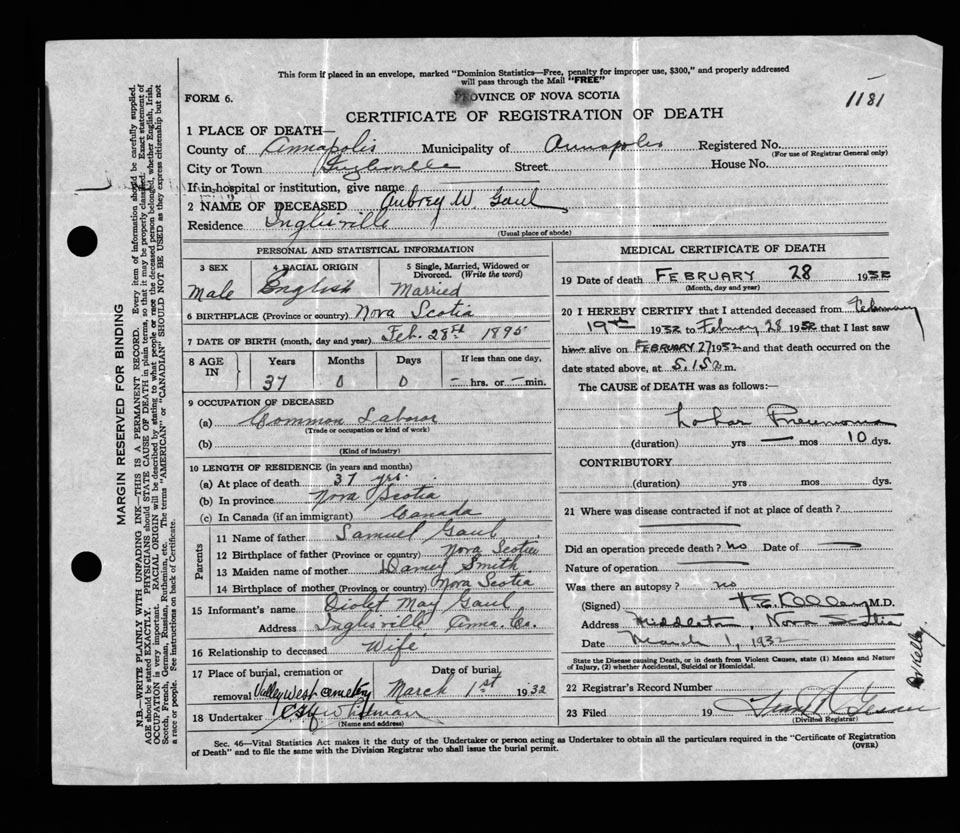 This form if placed in an envelope, marked "Dominion Statistics—Free, penalty for improper use, $300," and properly addressed
will pass through the Mail "FREE"
FORM 6.
PROVINCE OF NOVA SCOTIA
1181
CERTIFICATE OF REGISTRATION OF DEATH
1 PLACE OF DEATH—
County of Annapolis Municipality of Annapolis Registered No.
(For use of Registrar General only)
City or Town Inglisville Street House No.
If in hospital or institution, give name
2 NAME OF DECEASED Aubrey W. Gaul
Residence Inglisville
(Usual place of abode)
PERSONAL AND STATISTICAL INFORMATION
3 SEX 4 RACIAL ORIGIN 5 Single, Married, Widowed or
Divorced. (Write the word)
Male English Married
6 BIRTHPLACE (Province or country) Nova Scotia
7 DATE OF BIRTH (month, day and year) Feb. 28th 1895
8 AGE IN Years Months Days If less than one day,
37 0 0 — hrs. or — min.
9 OCCUPATION OF DECEASED
(a) Common Labour
(Trade or occupation or kind of work)
(b)
(Kind of industry)
10 LENGTH OF RESIDENCE (in years and months)
(a) At place of death 37 yrs.
(b) In province Nova Scotia
(c) In Canada (if an immigrant) Canada
Parents
11 Name of father Samuel Gaul
12 Birthplace of father (Province or country) Nova Scotia
13 Maiden name of mother Smith
14 Birthplace of mother (Province or country) Nova Scotia
15 Informant's name Violet May Gaul
Address Inglisville Anna. Co.
16 Relationship to deceased Wife
17 Place of burial, cremation or Date of burial,
removal Valley West Cemetery March 1st 1932
18 Undertaker Whitman
(Name and address)
MEDICAL CERTIFICATE OF DEATH
19 Date of death FEBRUARY 28 1932
(Month, day and year)
20 I HEREBY CERTIFY that I attended deceased from February
19th 1932 to February 28 1932 that I last saw
him alive on FEBRUARY 27 1932 and that death occurred on the
date stated above, at 5.15 a m.
The CAUSE of DEATH was as follows:—
Lobar Pneumonia
(duration) yrs — mos 10 dys.
CONTRIBUTORY
(duration) yrs. mos. dys.
21 Where was disease contracted if not at place of death?
Did an operation precede death? no Date of
Nature of operation
Was there an autopsy? no
(Signed) M.D.
Address Middleton, Nova Scotia
Date March 1, 1932
Dr Kelley
State the Disease causing Death, or in death from Violent Causes, state (1) Means and Nature
of Injury, (2) whether Accidental, Suicidal or Homicidal.
22 Registrar's Record Number
23 Filed 19
(Division Registrar)
Sec. 46—Vital Statistics Act makes it the duty of the Undertaker or person acting as Undertaker to obtain all the particulars required in the "Certificate of Registration
of Death" and to file the same with the Division Registrar who shall issue the burial permit.
(OVER)
MARGIN RESERVED FOR BINDING
N.B.—WRITE PLAINLY WITH UNFADING INK—THIS IS A PERMANENT RECORD. Every item of information should be carefully supplied.
AGE should be stated EXACTLY. PHYSICIANS should STATE CAUSE OF DEATH in plain terms, so that it may be properly classified. Exact statement of
OCCUPATION is very important. RACIAL ORIGIN will be described by stating to what people or race the deceased person belonged, whether English, Irish,
Scotch, French, German, Russian, Ruthenian, etc. The terms "AMERICAN" or "CANADIAN" SHOULD NOT BE USED as they express citizenship but not
a race or people. See instructions on back of Certificate.